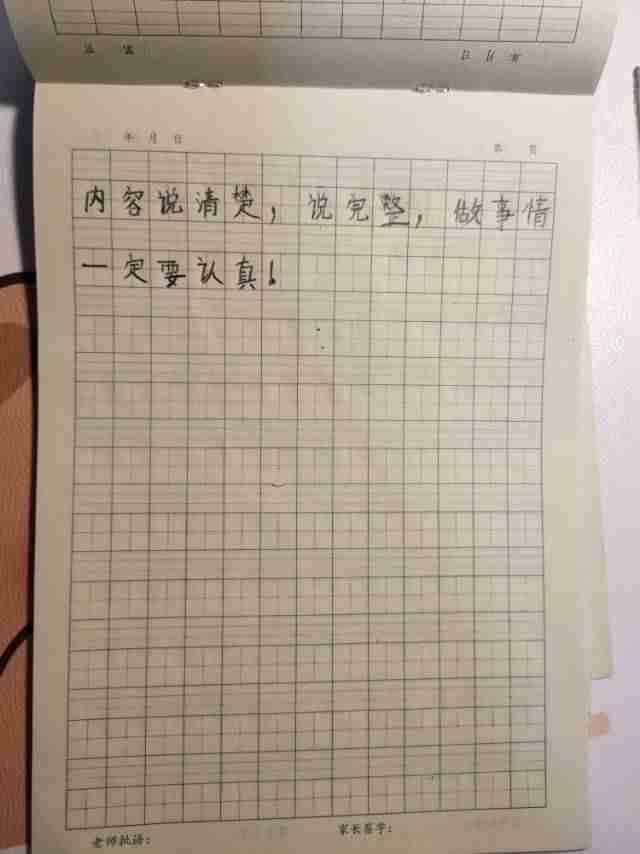 年 月 日
第 页
内容说清楚，说完整，做事情
一定要认真！
老师批语： 家长签字：